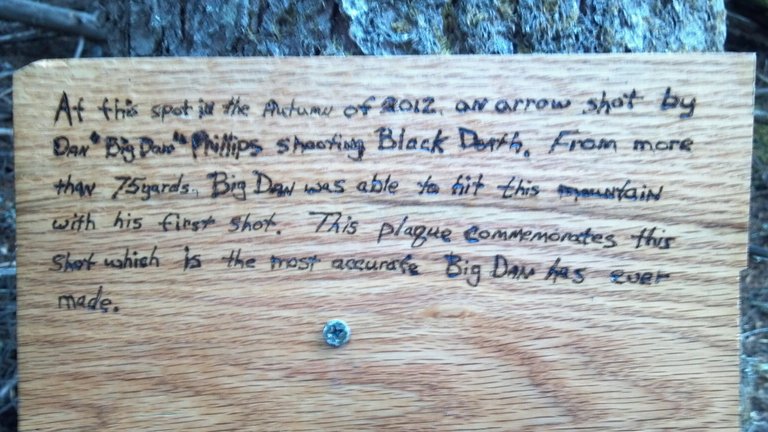 At this spot in the Autumn of 2012, an arrow shot by
Dan "Big Dan" Phillips shooting Black Death. From more
than 75yards, Big Dan was able to hit this mountain
with his first shot. This plaque commemorates this
shot which is the most accurate Big Dan has ever
made.